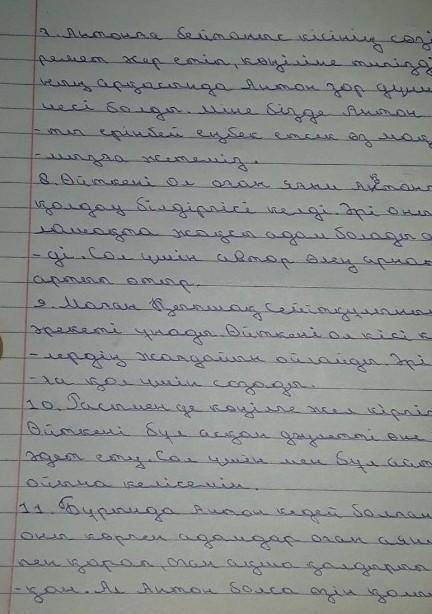 7. Антонға бейтаныс кісінің сөзі
жер етіп, көңіліне тиізді
арқасында Антон зор дүни
несі болды. Міне бізде Антон
-ты ерінбей еңбек етсек өз мақ
жетеміз.
8. Өйткені ол оған яғни Антонға
қолдау білдіргісі келді. Әрі оны
жақсы адам болады
-ді. Сол үшін автор өлең арнап
отыр.
9. Маған Қыпшақ Сейтқұлының
әрекеті ұнады. Өйткені ол кісі к
-лердің жағдайын ойлайды. Әрі
-ға қол ұшін созады.
10. де көңілге жел кіргіз
Өйткені бұл асқан
әдет ету. Сол үшін мен бұл айт
ойына келісемін.
11. Бұрында Антон кедей болған
оны көрген адамдар оған аян
-пен қарап, оған ақша қалдырып
-қан. Ал Антон болса өзін қом